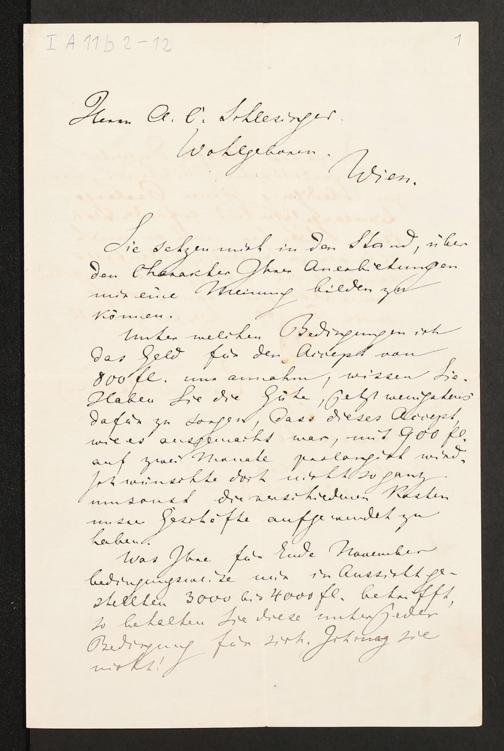 I A 11b 2-12
1
Herrn A. C. Schlesinger.
Wohlgeboren.
Wien.
Sie setzen mich in den Stand, über
den Charakter Ihrer Anerbietungen
mir eine Meinung bilden zu
können.
Unter welchen Bedingungen ich
das Geld für den Accept von
800 fl. nur annahm, wissen Sie.
Haben Sie die Güte, jetzt wenigstens
dafür zu sorgen, dass dieses Accept,
wie es ausgemacht war, mit 900 fl.
auf zwei Monate prolongirt wird.
Ich wünschte doch nicht so ganz
umsonst die verschiedenen Kosten
unserer Geschäfte aufgewendet zu
haben.
Was Ihre für Ende November
bedingungsweise mir in Aussicht ge-
stellten 3000 bis 4000 fl. betrifft,
so behalten Sie diese unter jeder
Bedingung für sich. Ich mag sie
nicht!